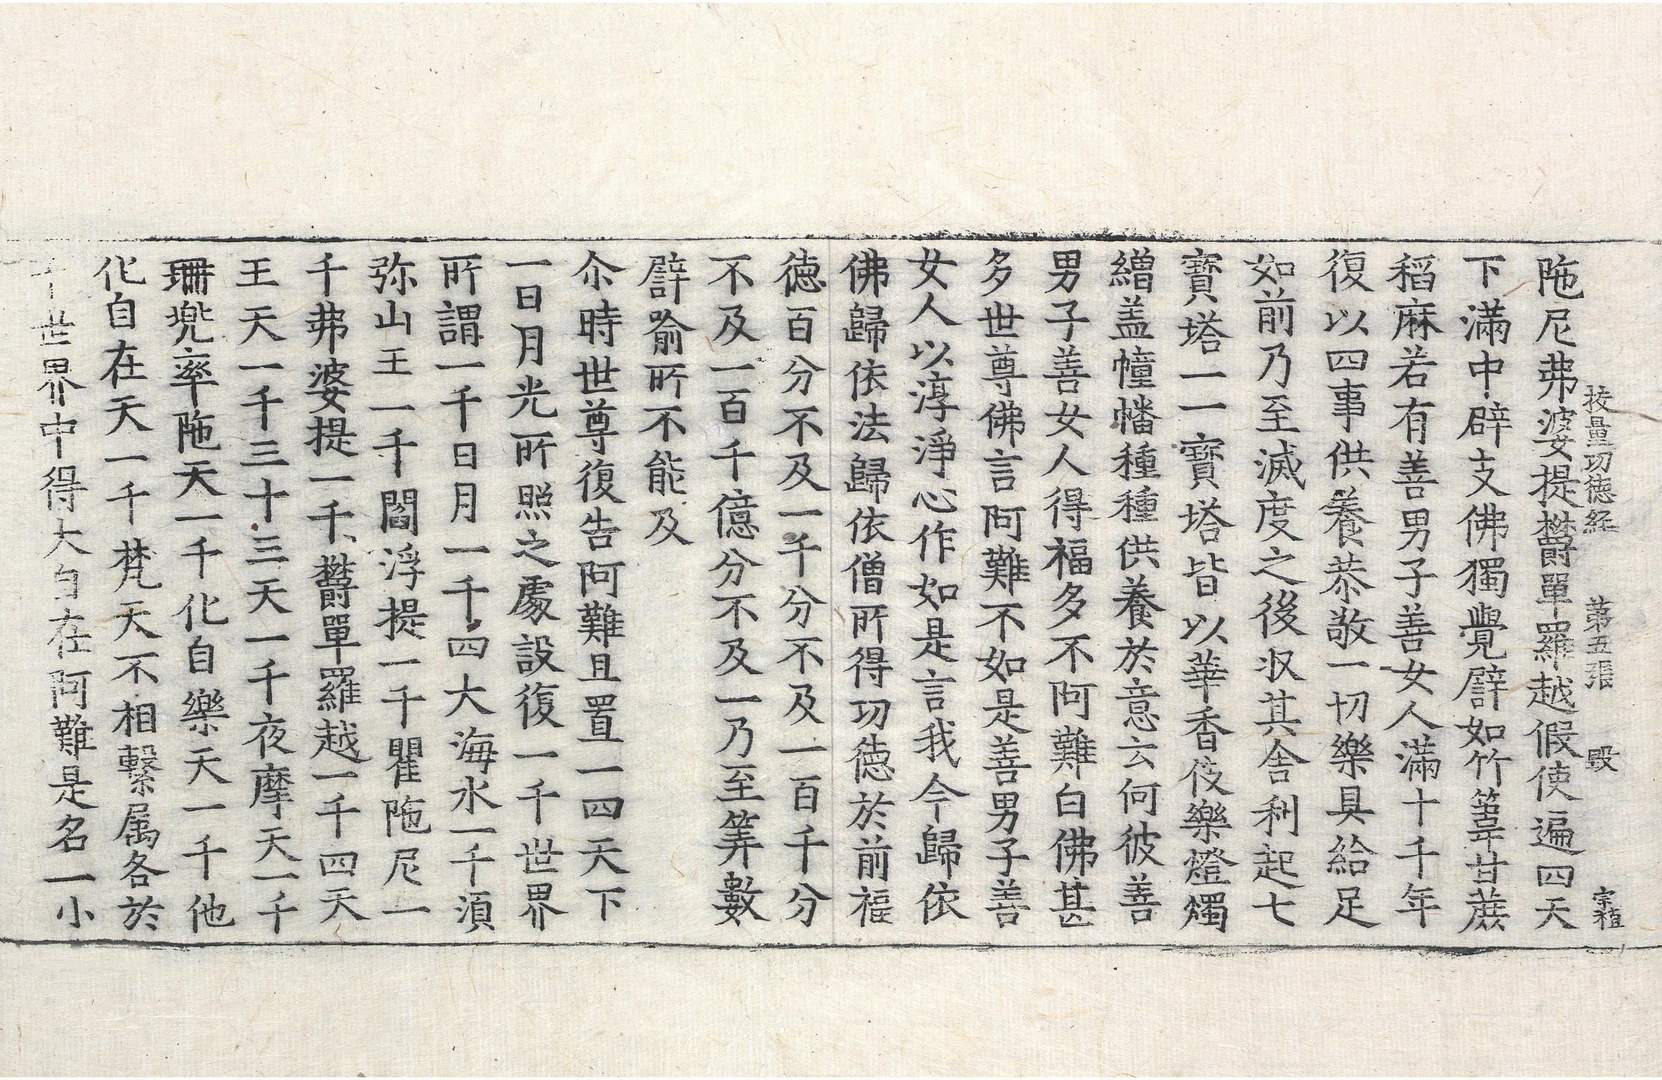 挍量功德經 第五張 毀 宗植
陁尼弗婆提欝單羅越假使遍四天
下滿中辟支佛獨覺譬如竹葦甘蔗
稻麻若有善男子善女人滿十千年
復以四事供養恭敬一切樂具給足
如前乃至滅度之後収其舍利起七
寶塔一一寶塔皆以華香伎樂燈燭
繒盖幢幡種種供養於意云何彼善
男子善女人得福多不阿難白佛甚
多世尊佛言阿難不如是善男子善
女人以淳淨心作如是言我今歸依
佛歸依法歸依僧所得功德於前福
德百分不及一千分不及一百千分
不及一百千億分不及一乃至筭數
譬喻所不能及
尒時世尊復告阿難且置一四天下
一日月光所照之處設復一千世界
所謂一千日月一千四大海水一千湏
弥山王一千閻浮提一千瞿陁尼一
千弗婆提一千欝單羅越一千四天
王天一千三十三天一千夜摩天一千
珊兠率陁天一千化自樂天一千他
化自在天一千梵天不相繫属各於
世界中得大自在阿難是名一小